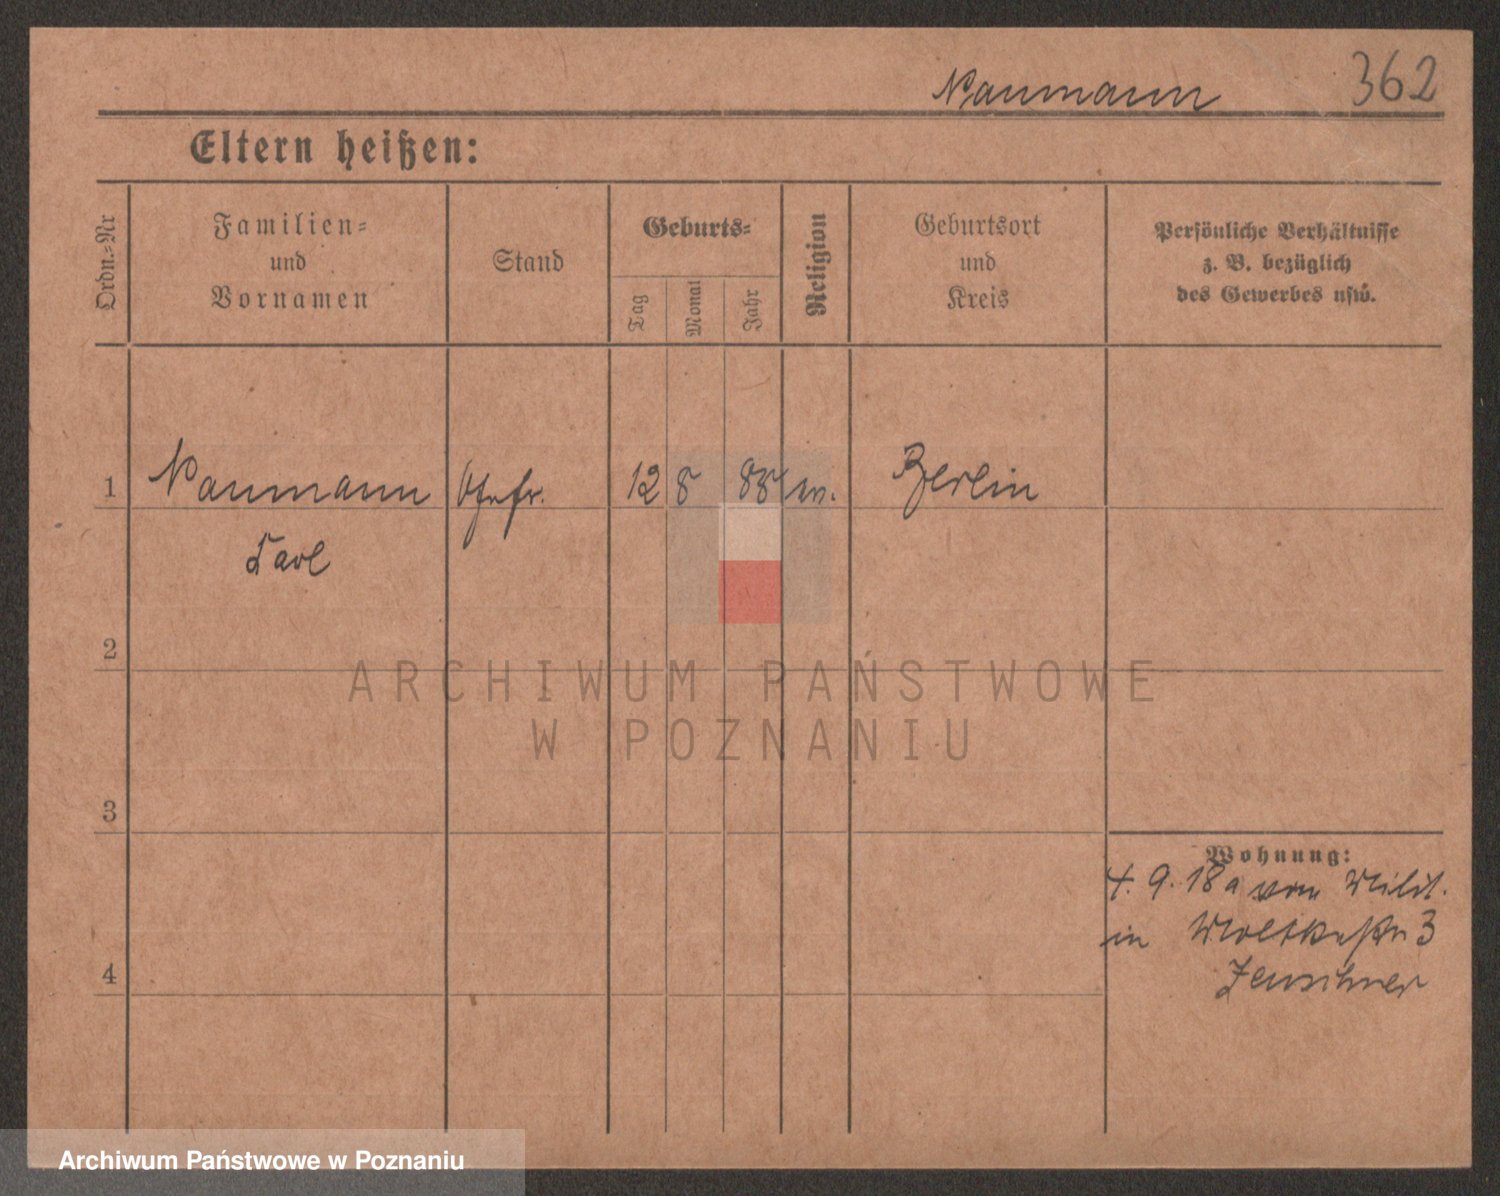 Naumann 362
Eltern heißen:
Ordn.-Nr
Familien-
und
Vornamen
Stand
Geburts-
Tag
Monat
Jahr
Religion
Geburtsort
und
Kreis
Persönliche Verhältnisse
z. B. bezüglich
des Gewerbes usw.
1 Naumann 12 8 88 Berlin
Karl
2
3
4
Wohnung:
4. 9. 18 von Milit.
in 3
ARCHIWUM PAŃSTWOWE
W POZNANIU
Archiwum Państwowe w Poznaniu